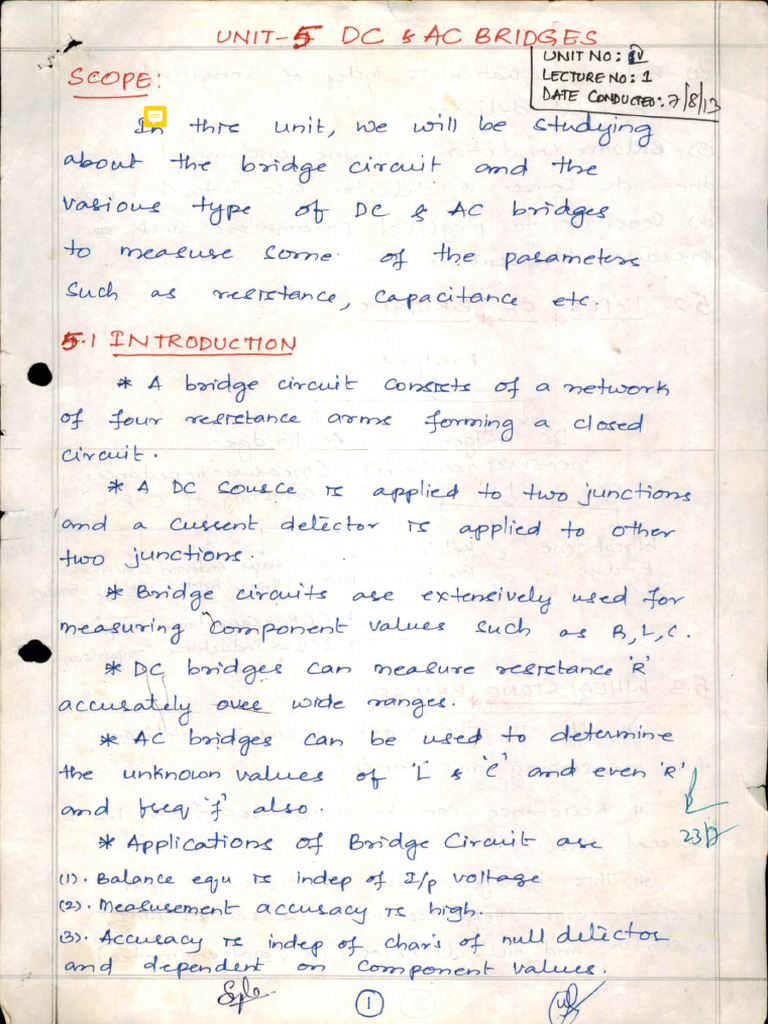 UNIT-5 DC & AC BRIDGES
UNIT NO: IV
LECTURE NO: 1
DATE CONDUCTED: 7/8/13
SCOPE:
In this unit, we will be studying
about the bridge circuit and the
various type of DC & AC bridges
to measure some of the parameters
such as resistance, capacitance etc.
5.1 INTRODUCTION
* A bridge circuit consists of a network
of four resistance arms forming a closed
circuit.
* A DC source is applied to two junctions
and a current detector is applied to other
two junctions.
* Bridge circuits are extensively used for
measuring component values such as R, L, C.
* DC bridges can measure resistance 'R'
accurately over wide ranges.
* AC bridges can be used to determine
the unknown values of 'L' & 'C' and even 'R'
and freq 'f' also.
* Applications of Bridge Circuit are
(1). Balance equ is indep of I/p voltage
(2). Measurement accuracy is high.
(3). Accuracy is indep of char's of null detector
and dependent on component values.
1